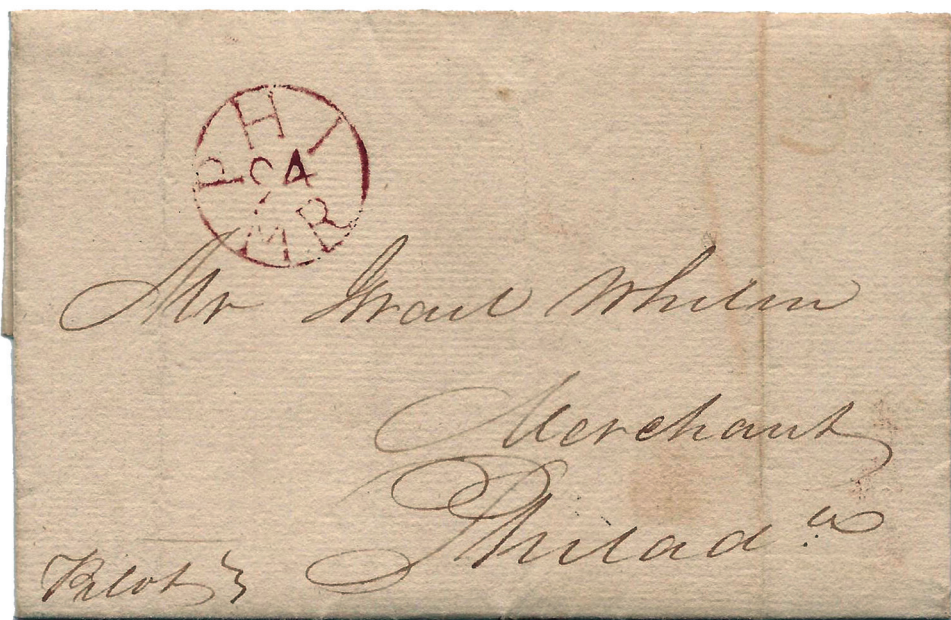 PHI
24
MR
Mr Israel Whelen
Merchant
Philad.a
Pilot }